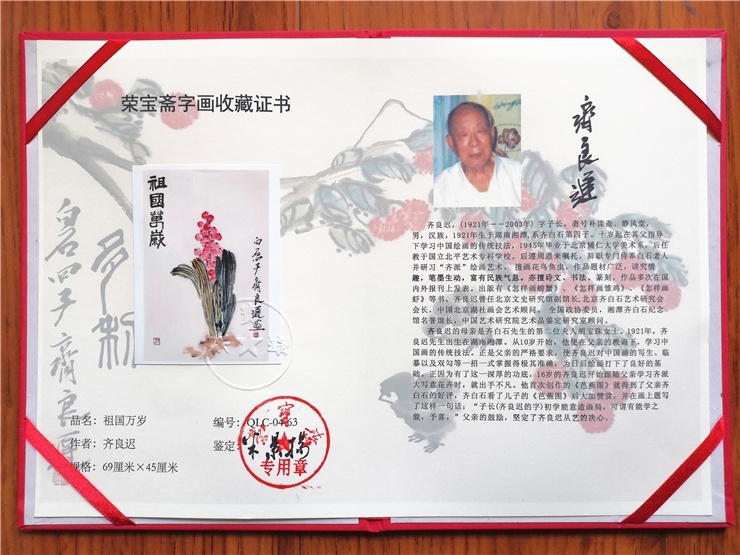 荣宝斋字画收藏证书
祖國萬歲
白石四子齊良遲画
白石四子齊良遲
品名：祖国万岁
作者：齐良迟
规格：69厘米×45厘米
编号：QLC-0463
鉴定：
专用章
齊良遲
齐良迟，(1921年－－2003年) 字子长，斋号补读斋、静风堂，
男，汉族，1921年生于湖南湘潭,系齐白石第四子。十岁起在其父指导
下学习中国绘画的传统技法，1945年毕业于北京辅仁大学美术系，后任
教于国立北平艺术专科学校。后遵周恩来嘱托，辞职专门侍奉白石老人
并研习“齐派”绘画艺术。擅画花鸟鱼虫，作品题材广泛，讲究情
趣，笔墨生动，富有民族气息。亦擅诗文、书法、篆刻，作品多次在国
内外报刊上发表。出版有《怎样画螃蟹》、《怎样画雏鸡》、《怎样画
虾》等书。齐良迟曾任北京文史研究馆副馆长,北京齐白石艺术研究会
会长，中国北京湖社画会艺术顾问。全国政协委员，湘潭齐白石纪念
馆名誉馆长，中国艺术研究院艺术品鉴定研究室顾问。
齐良迟的母亲是齐白石先生的第二位夫人胡宝珠女士。1921年，齐
良迟先生出生在湖南湘潭。从10岁开始，他便在父亲的教诲下，学习中
国画的传统技法。正是父亲的严格要求，使齐良迟对中国画的写生、临
摹以及双勾等一招一式掌握得极其准确，为日后绘画打下了良好的基
础。正因为有了这一深厚的功底，16岁的齐良迟开始跟随父亲学习齐派
大写意花卉时，就出手不凡。他首次创作的《芭蕉图》就得到了父亲齐
白石的好评，齐白石看了儿子的《芭蕉图》后大加赞赏，并在画上题写
了这样一句话：“子长(齐良迟的字)初学能意造画局，可谓有能学之
能，予喜。”父亲的鼓励，坚定了齐良迟从艺的决心。